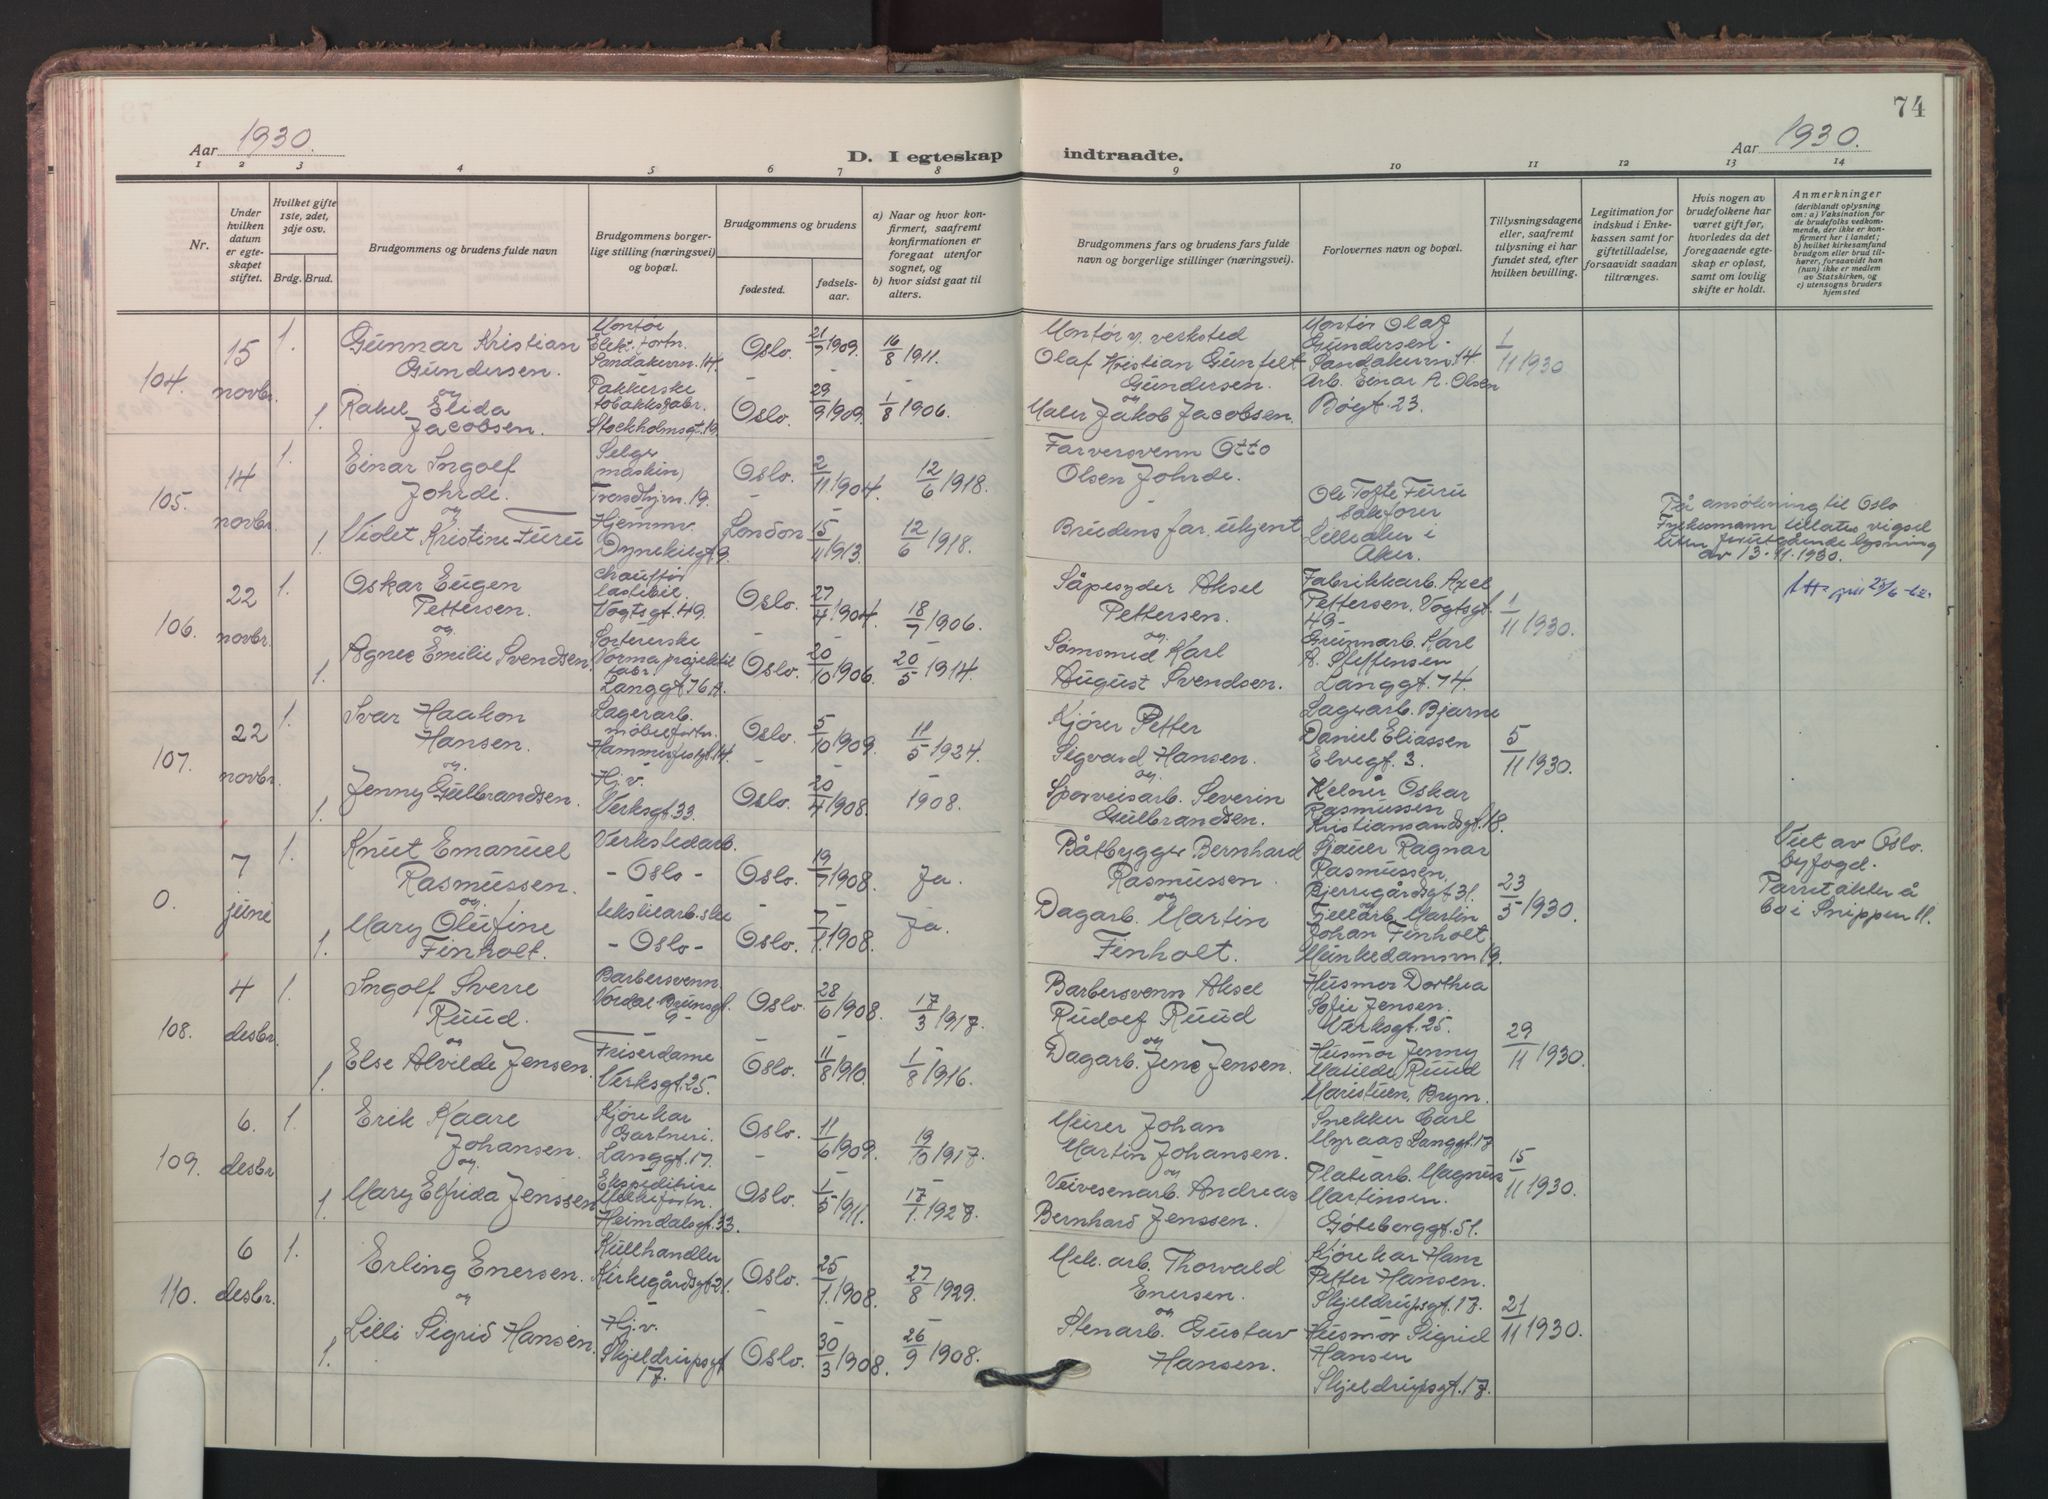 74
Aar 1930.
D. I egteskap indtraadte.
Aar 1930.
1 2 3 4 5 6 7 8 9 10 11 12 13 14
Nr.
Under hvilken datum er egteskapet stiftet.
Hvilket gifte 1ste, 2det, 3dje osv.
Brdg. Brud.
Brudgommens og brudens fulde navn
Brudgommens borgerlige stilling (næringsvei) og bopæl.
Brudgommens og brudens
fødested.
fødselsaar.
a) Naar og hvor konfirmert, saafremt konfirmationen er foregaat utenfor sognet, og
b) hvor sidst gaat til alters.
Brudgommens fars og brudens fars fulde navn og borgerlige stillinger (næringsvei).
Forlovernes navn og bopæl.
Tillysningsdagene eller, saafremt tillysning ei har fundet sted, efter hvilken bevilling.
Legitimation for indskud i Enkekassen samt for giftetilladelse, forsaavidt saadan tiltrænges.
Hvis nogen av brudefolkene har været gift før, hvorledes da det foregaaende egteskap er opløst, samt om lovlig skifte er holdt.
Anmerkninger
(deriblandt oplysning om: a) Vaksination for de brudefolks vedkommende, der ikke er konfirmert her i landet; b) hvilket kirkesamfund brudgom eller brud tilhører, forsaavidt han (hun) ikke er medlem av Statskirken, og c) utensogns bruders hjemsted
104. 15 novbr. 1. 1.
Gunnar Kristian Gundersen.
og
Rakel Elida Jacobsen.
Montør Elek. fortn. Sandakervn. 14.
Pakkerske tobakksfabr. Stockholmsgt. 19
Oslo. 21/7 1909. 16/8 1911.
Oslo. 29/9 1909. 1/8 1906.
Montør v. verksted Olaf Kristian Guntelt Gundersen.
og
Maler Jakob Jacobsen.
Montør Olaf Gundersen - Sandakervn. 14.
Arb. Einar A. Olsen Bøgt. 23.
1/11 1930
105. 14 novbr. 1. 1.
Einar Ingolf Johrde.
og
Violet Kristine Furu
Selger maskin, Trondhjvn. 19.
Hjemmv. Dynekilgt 9.
Oslo. 2/11 1904. 12/6 1918.
London 15/11 1913. 12/6 1918.
Farversvenn Otto Olsen Johrde.
Brudens far ukjent
Ole Tofte Furu sakfører Lilledlur i Aker.
På ansökning til Oslo Fylkesmann tillates vigsel uten forutgående lysning av 13-11-1930.
106. 22 novbr. 1. 1.
Oskar Eugen Pettersen.
og
Agnes Emilie Svendsen.
chauffør lastebil. Vogtsgt. 49.
Sortererske Norma projektil fabr. Langgt 76 A.
Oslo. 27/4 1904. 18/7 1906.
Oslo. 20/10 1906. 20/5 1914.
Såpesyder Aksel Pettersen.
og
Sömsmed Karl August Svendsen.
Fabrikkarb. Axel Pettersen, Vogtsgt. 49 -
Grunnarb. Karl A. Steffensen Langgt. 74.
1/11 1930.
107. 22 novbr. 1. 1.
Ivar Haakon Hansen.
og
Jenny Gulbrandsen.
Lagerarb. møbelfortn. Hammerfestgt. 14.
Hj.v. Verksgt. 33.
Oslo. 5/10 1909. 11/5 1924.
Oslo. 20/4 1908. 1908.
Kjører Petter Sigvard Hansen.
og
Sporveisarb. Severin Gulbrandsen.
Lagerarb. Bjarne Daniel Eliassen Elvegt. 3.
Kelner Oskar Rasmussen Kristiansandsgt. 18.
5/11 1930.
0. 7 juni 1. 1.
Knut Emanuel Rasmussen.
og
Mary Olufine Finholt.
Verkstedarb. - Oslo -
tekstilarb.ske - Oslo -
Oslo. 19/7 1908. Ja.
Oslo. 7/1. 1908. Ja.
Båtbygger Bernhard Rasmussen
og
Dagarb. Martin Finholt.
Stauer Ragnar Rasmussen, Bjerregårdsgt 31.
og
Fjellarb. Martin Johan Finholt Munkedamsvn 19.
23/5 1930.
Viet av Oslo. byfogd. Parret akter å bo i Snippen 11.
108. 4 desbr. 1. 1.
Ingolf Sverre Ruud.
og
Else Alvilde Jensen.
Barbersvenn Nordal Brunsgt. 9 -
Friserdame Verksgt. 25.
Oslo. 28/6 1908. 17/3 1917.
Oslo. 11/8 1910. 1/8 1916.
Barbersvenn Aksel Rudolf Ruud
og
Dagarb. Jens Jensen.
Husmor Dorthea Sofie Jensen. Verksgt. 25.
Husmor Jenny Matilde Ruud Maristuen, Bryn.
29/11 1930.
109. 6. desbr. 1. 1.
Erik Kaare Johansen.
og
Mary Elfrida Jenssen
Kjørekar Gartneri. Langgt. 17.
Ekspeditrise Melkefortn. Heimdalsgt. 33.
Oslo. 11/6 1909. 19/10 1917.
Oslo. 1/5 1911. 17/1. 1927.
Murer Johan Martin Johansen.
og
Veivesenarb. Andreas Bernhard Jenssen.
Snekker Carl Myraas Langgt. 17
Platearb. Magnus Martinsen. Göteborggt. 51.
15/11 1930.
110. 6 desbr. 1. 1.
Erling Enersen.
og
Lilli Sigrid Hansen.
Kullhandler Kirkegårdsgt 21.
Hj.v. Skjeldrupsgt 17.
Oslo. 25/1. 1908. 27/8 1929.
Oslo. 30/3 1908. 26/9 1908.
Mek. arb. Thorvald Enersen.
og
Stenarb. Gustav Hansen.
Kjørekar Hans Petter Hansen. Skjeldrupsgt. 17.
Husmor Sigrid Hansen Skjeldrupsgt. 17.
21/11 1930.